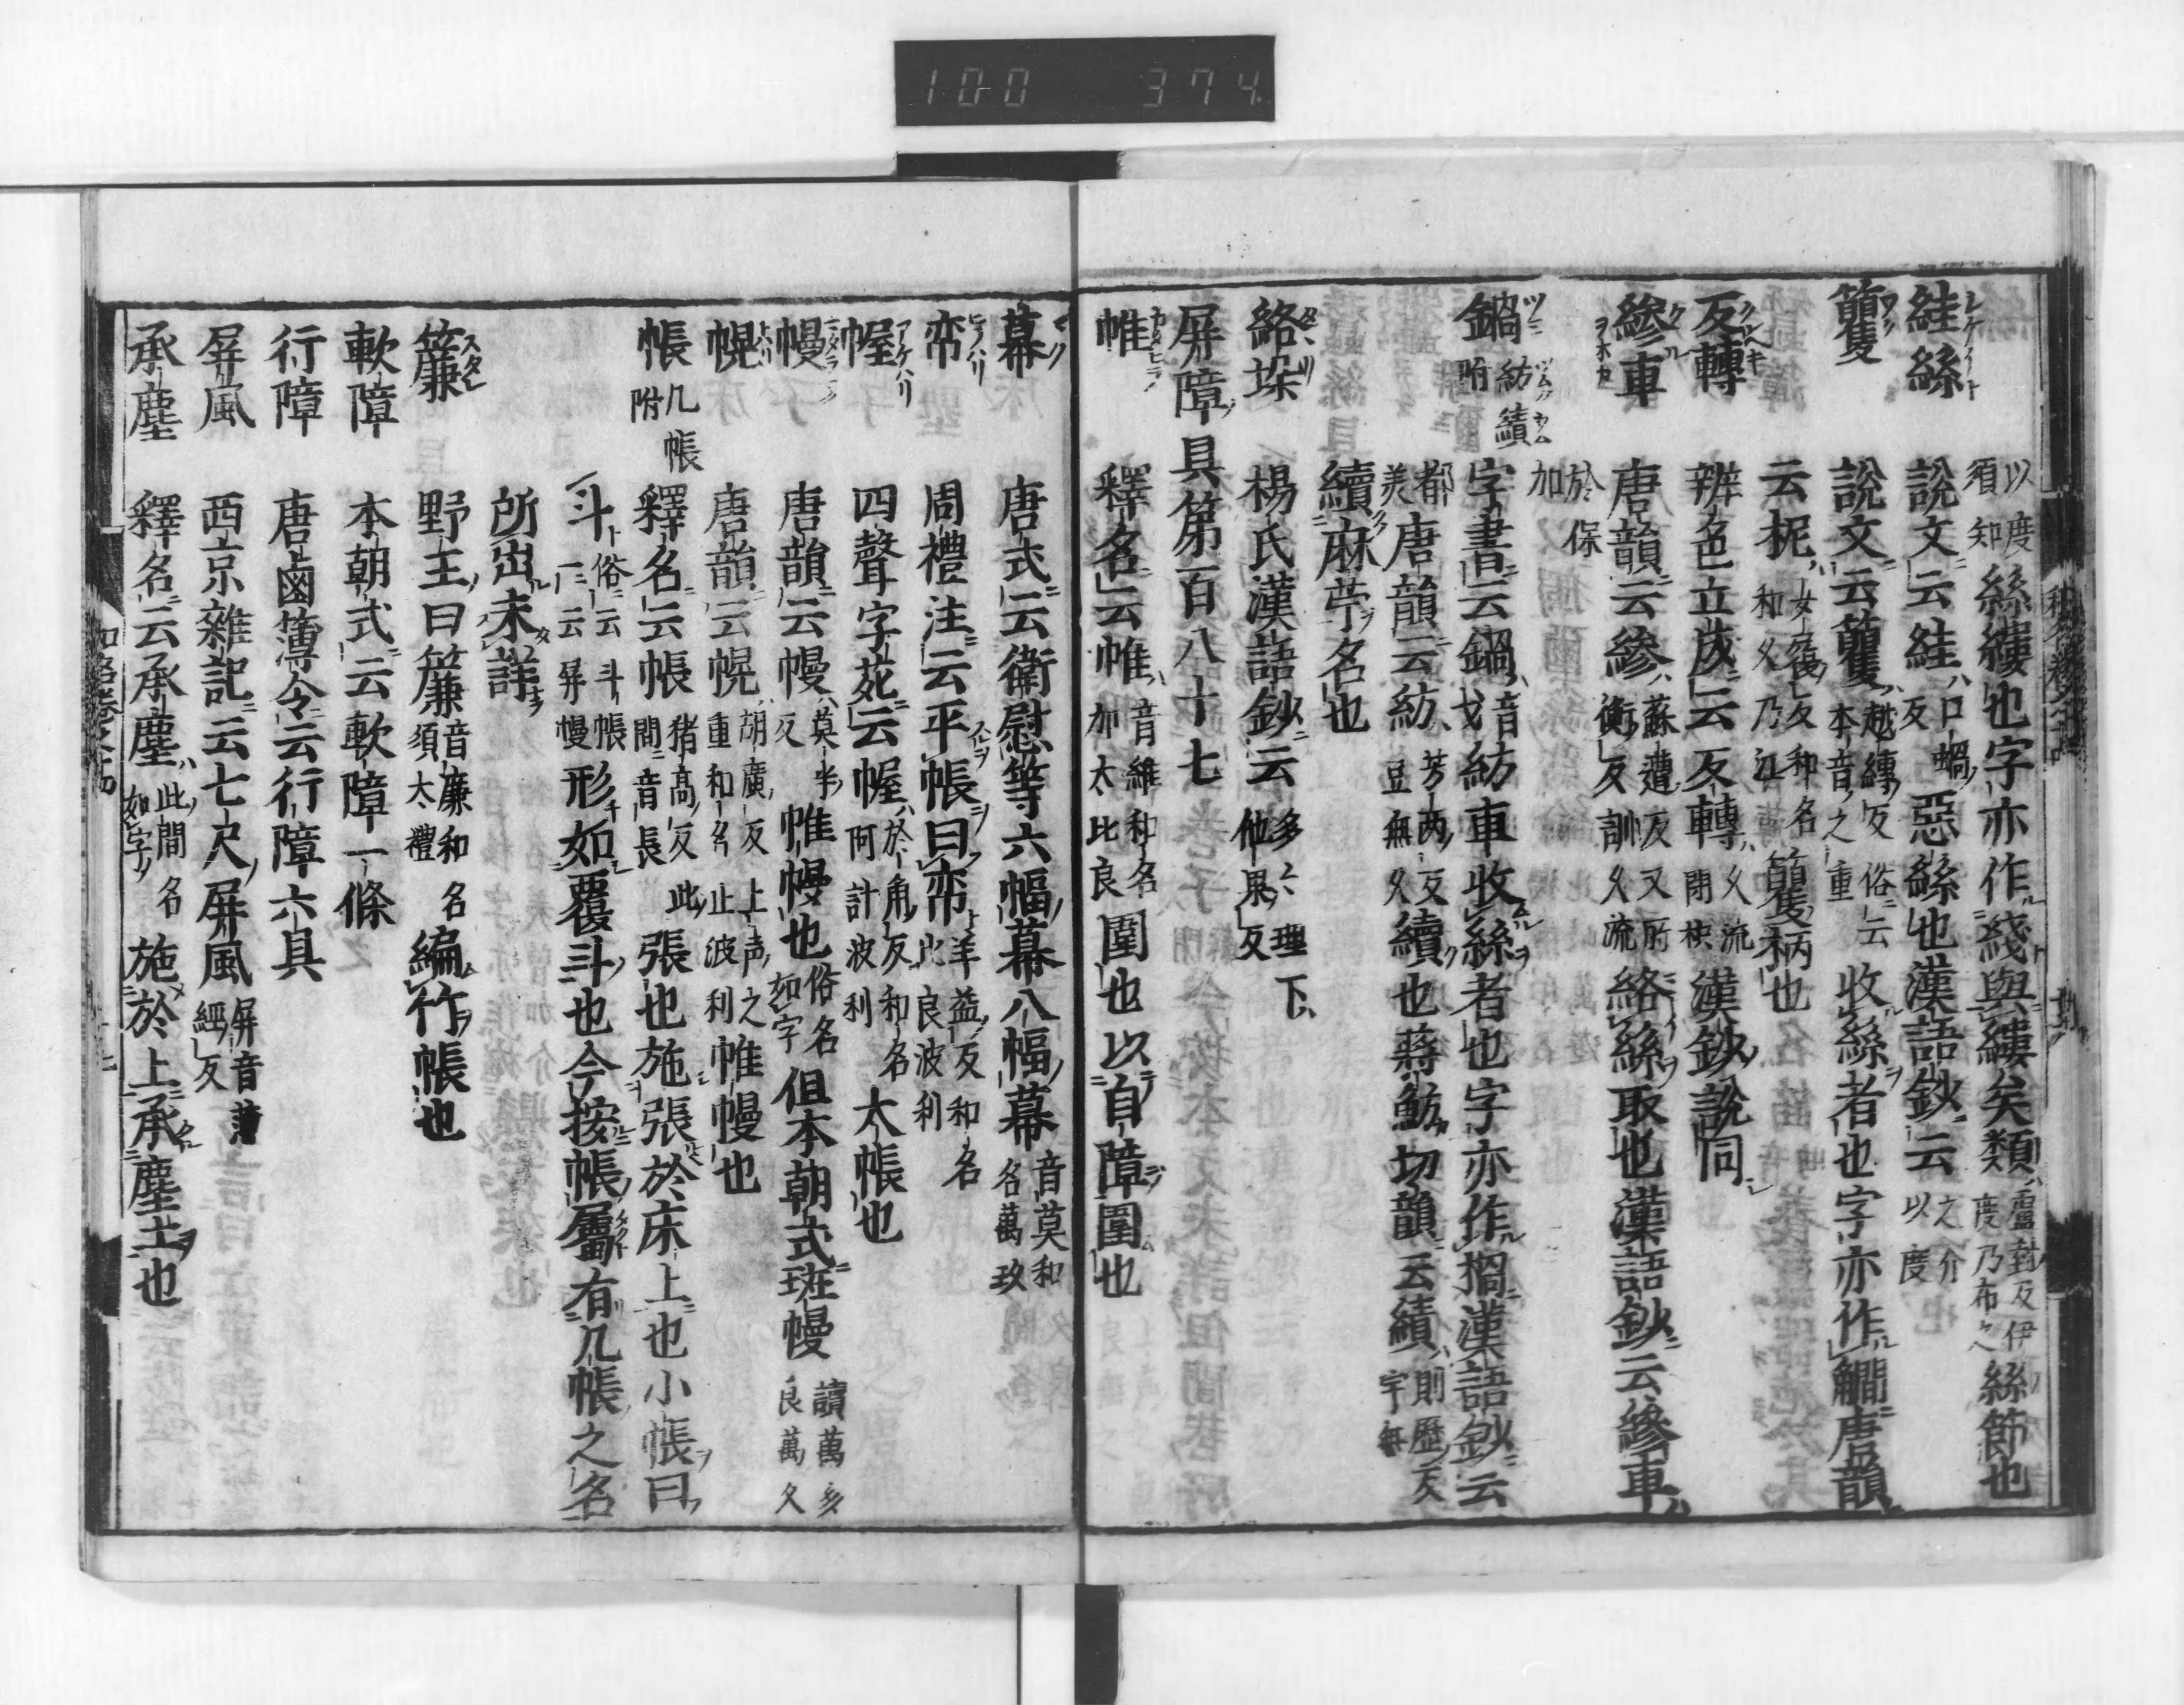 100 374
以度須知 絲縷也字亦作綫與縷矣類 盧對反伊度乃布之 絲節也
絓絲 說文云絓 口蝸反 惡絲也漢語鈔云 之介以度
籰 說文云籰 越縛反俗云本音之重 收絲者也字亦作 唐韻
云柅 女履反和名和久乃江 籰柄也
反轉 辨色立成云反轉 久流閇枳 漢鈔說同
縿車 唐韻云縿 蘇遭反又所銜反訓久流 絡絲取也漢語鈔云縿車
於保加
鍋 紡績附 字書云鍋 音戈 紡車收絲者也字亦作楇漢語鈔云
都美 唐韻云紡 芳兩反豆無久 續也蔣魴切韻云績 則歷反宇無
續麻苧名也
絡垛 楊氏漢語鈔云 多々理下他果反
屏障具第百八十七
帷 釋名云帷 音維和名加太比良 圍也以自障圍也
幕 唐式云衛尉等六幅幕八幅幕 音莫和名萬玖
帟 周禮注云平帳曰帟 羊益反和名比良波利
幄 四聲字苑云幄 於角反和名阿計波利 大帳也
幔 唐韻云幔 莫半反 帷幔也 俗名如字 但本朝式斑幔 讀萬多良萬久
幌 唐韻云幌 胡廣反上声之重和名止波利 帷幔也
帳 几帳附 釋名云帳 猪高反此間音長 張也施張於床上也小帳曰
斗 俗云斗帳一云屏幔 形如覆斗也今按帳屬有几帳之名
所出未詳
簾 野王曰簾 音廉和名須太禮 編竹帳也
軟障 本朝式云軟障一條
行障 唐鹵簿令云行障六具
屏風 西京雜記云七尺屏風 屏音薄經反
承塵 釋名云承塵 此間名如字 施於上承塵土也